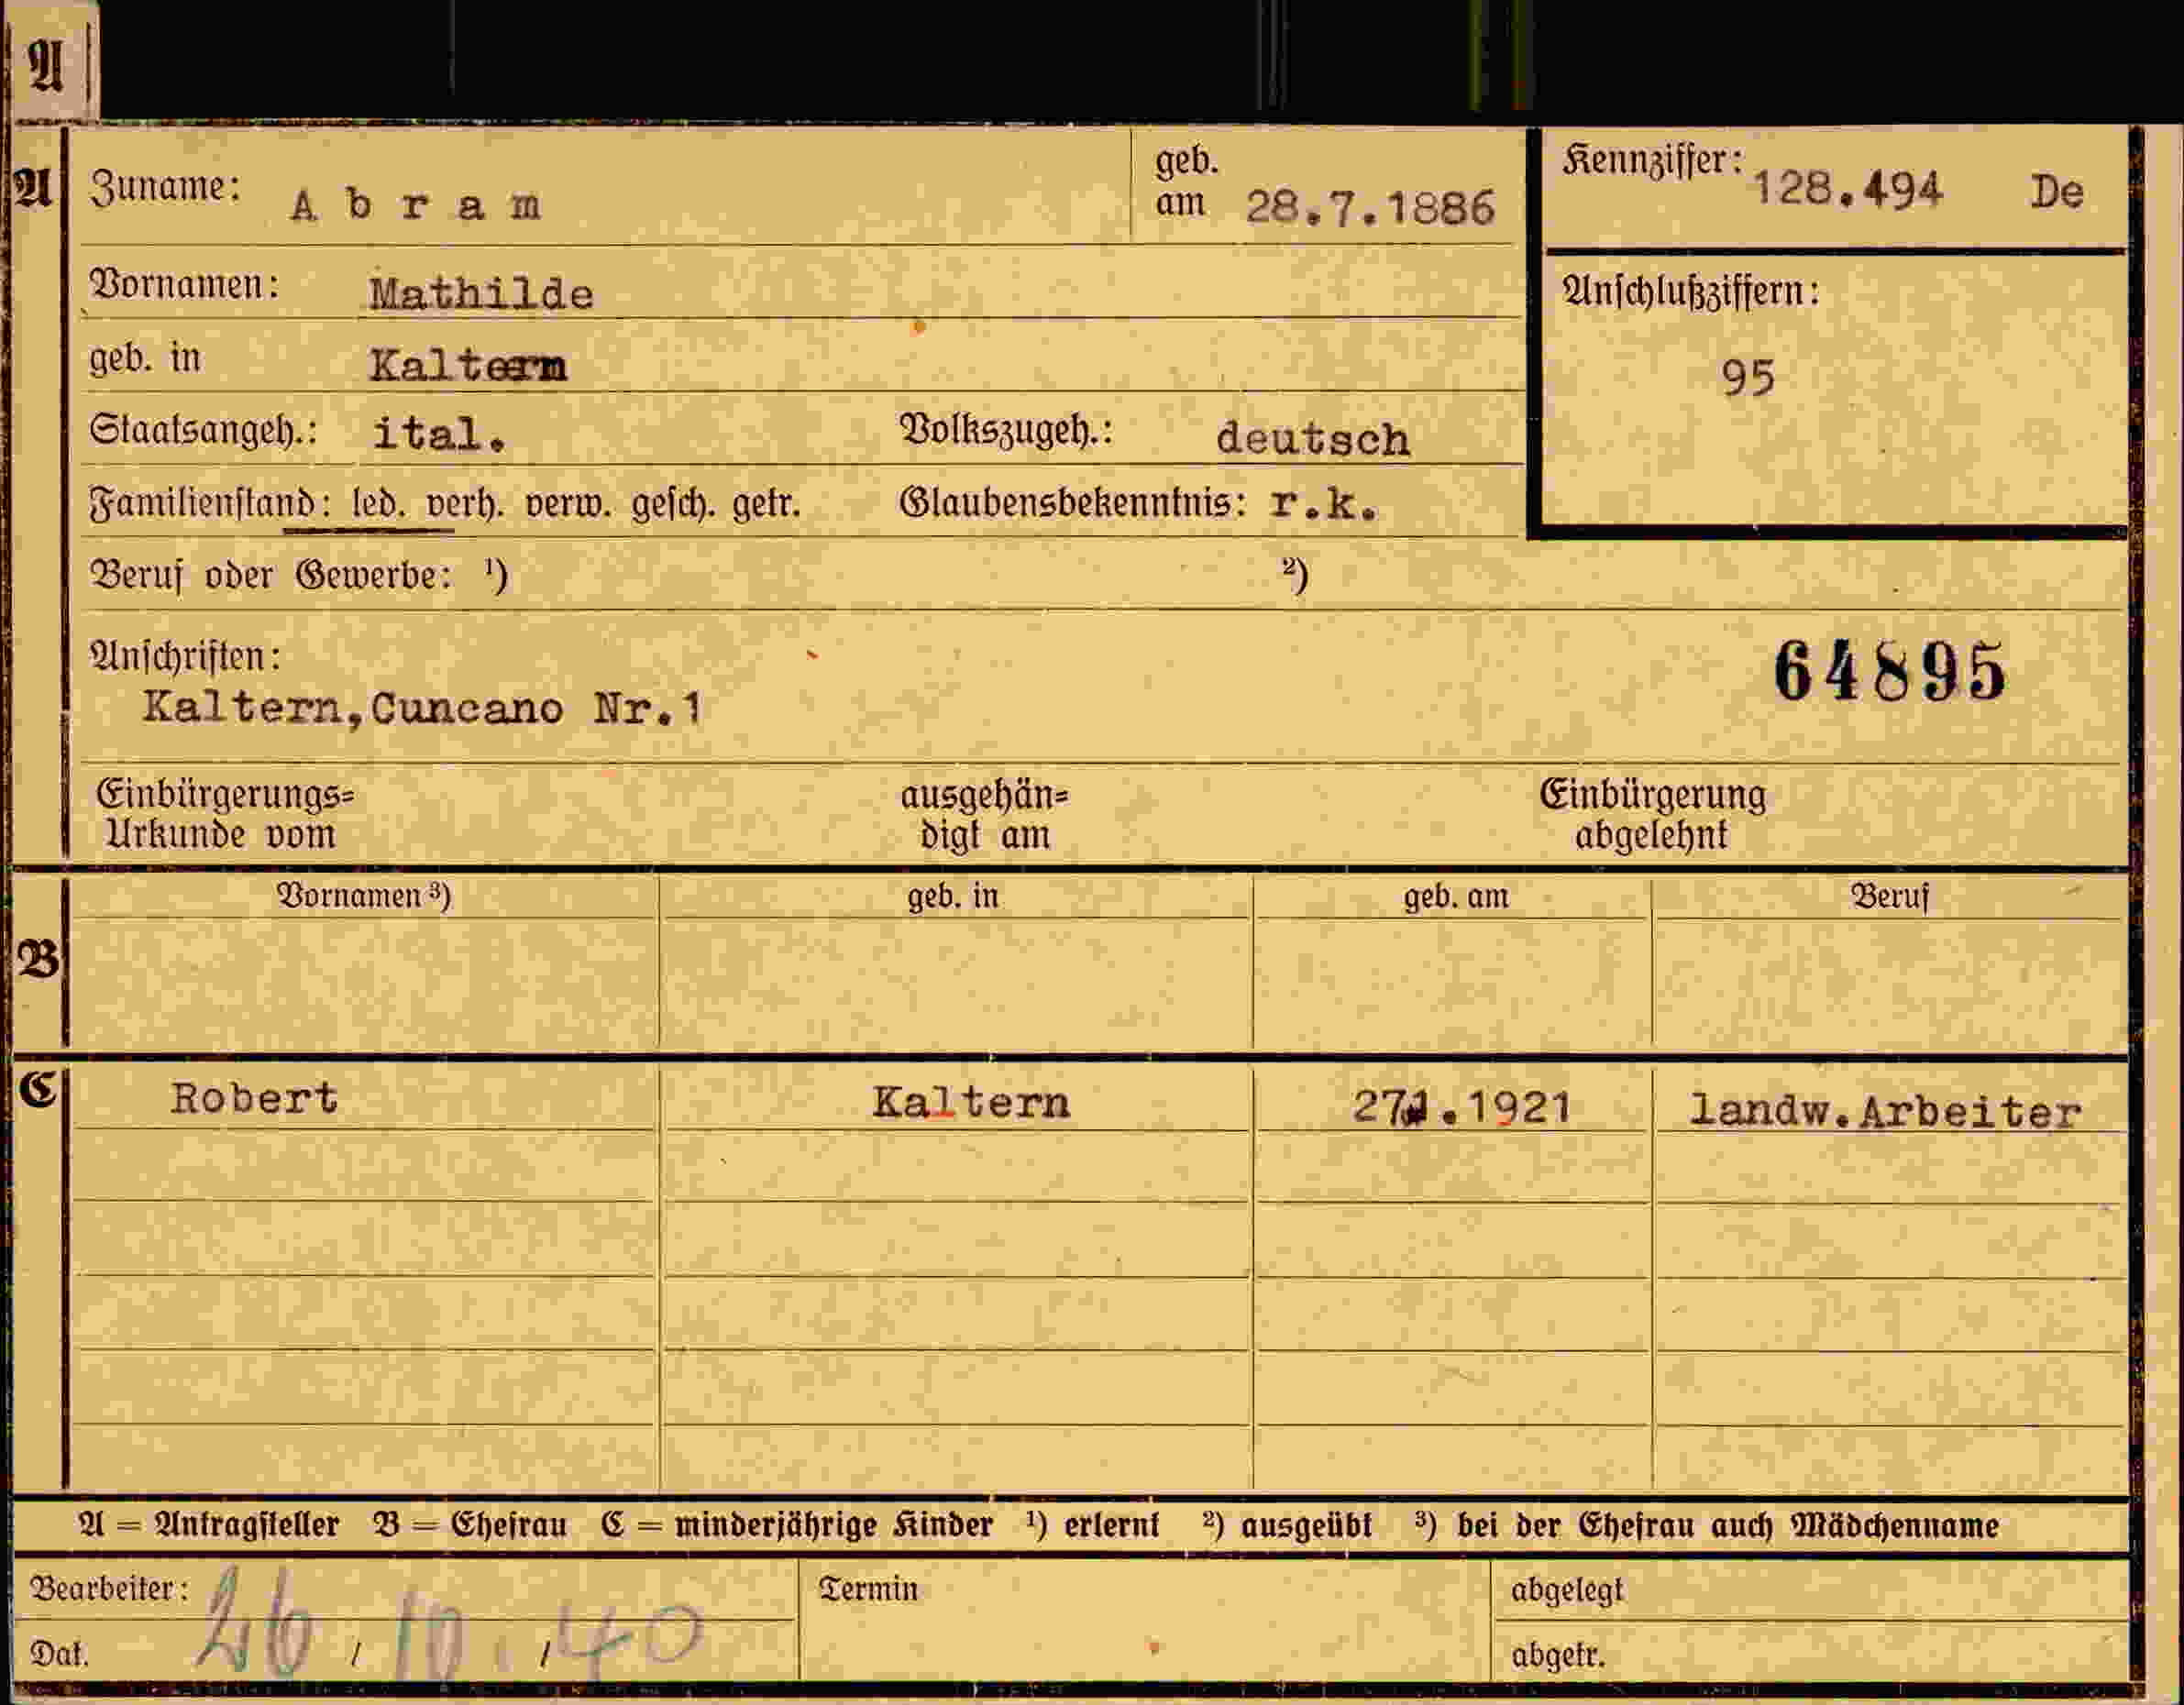 A
A
Zuname: Abram
geb. am 28.7.1886
Kennziffer: 128.494 De
Vornamen: Mathilde
Anschlußziffern:
95
geb. in Kaltern
Staatsangeh.: ital. Volkszugeh.: deutsch
Familienstand: led. verh. verw. gesch. getr. Glaubensbekenntnis: r.k.
Beruf oder Gewerbe: ¹) ²)
Anschriften:
64895
Kaltern,Cuncano Nr.1
Einbürgerungs= ausgehän= Einbürgerung
Urkunde vom digt am abgelehnt
Vornamen ³) geb. in geb. am Beruf
B
C Robert Kaltern 27.1.1921 landw.Arbeiter
A = Antragsteller B = Ehefrau C = minderjährige Kinder ¹) erlernt ²) ausgeübt ³) bei der Ehefrau auch Mädchenname
Bearbeiter: Termin abgelegt
Dat. 26/10/40 abgetr.